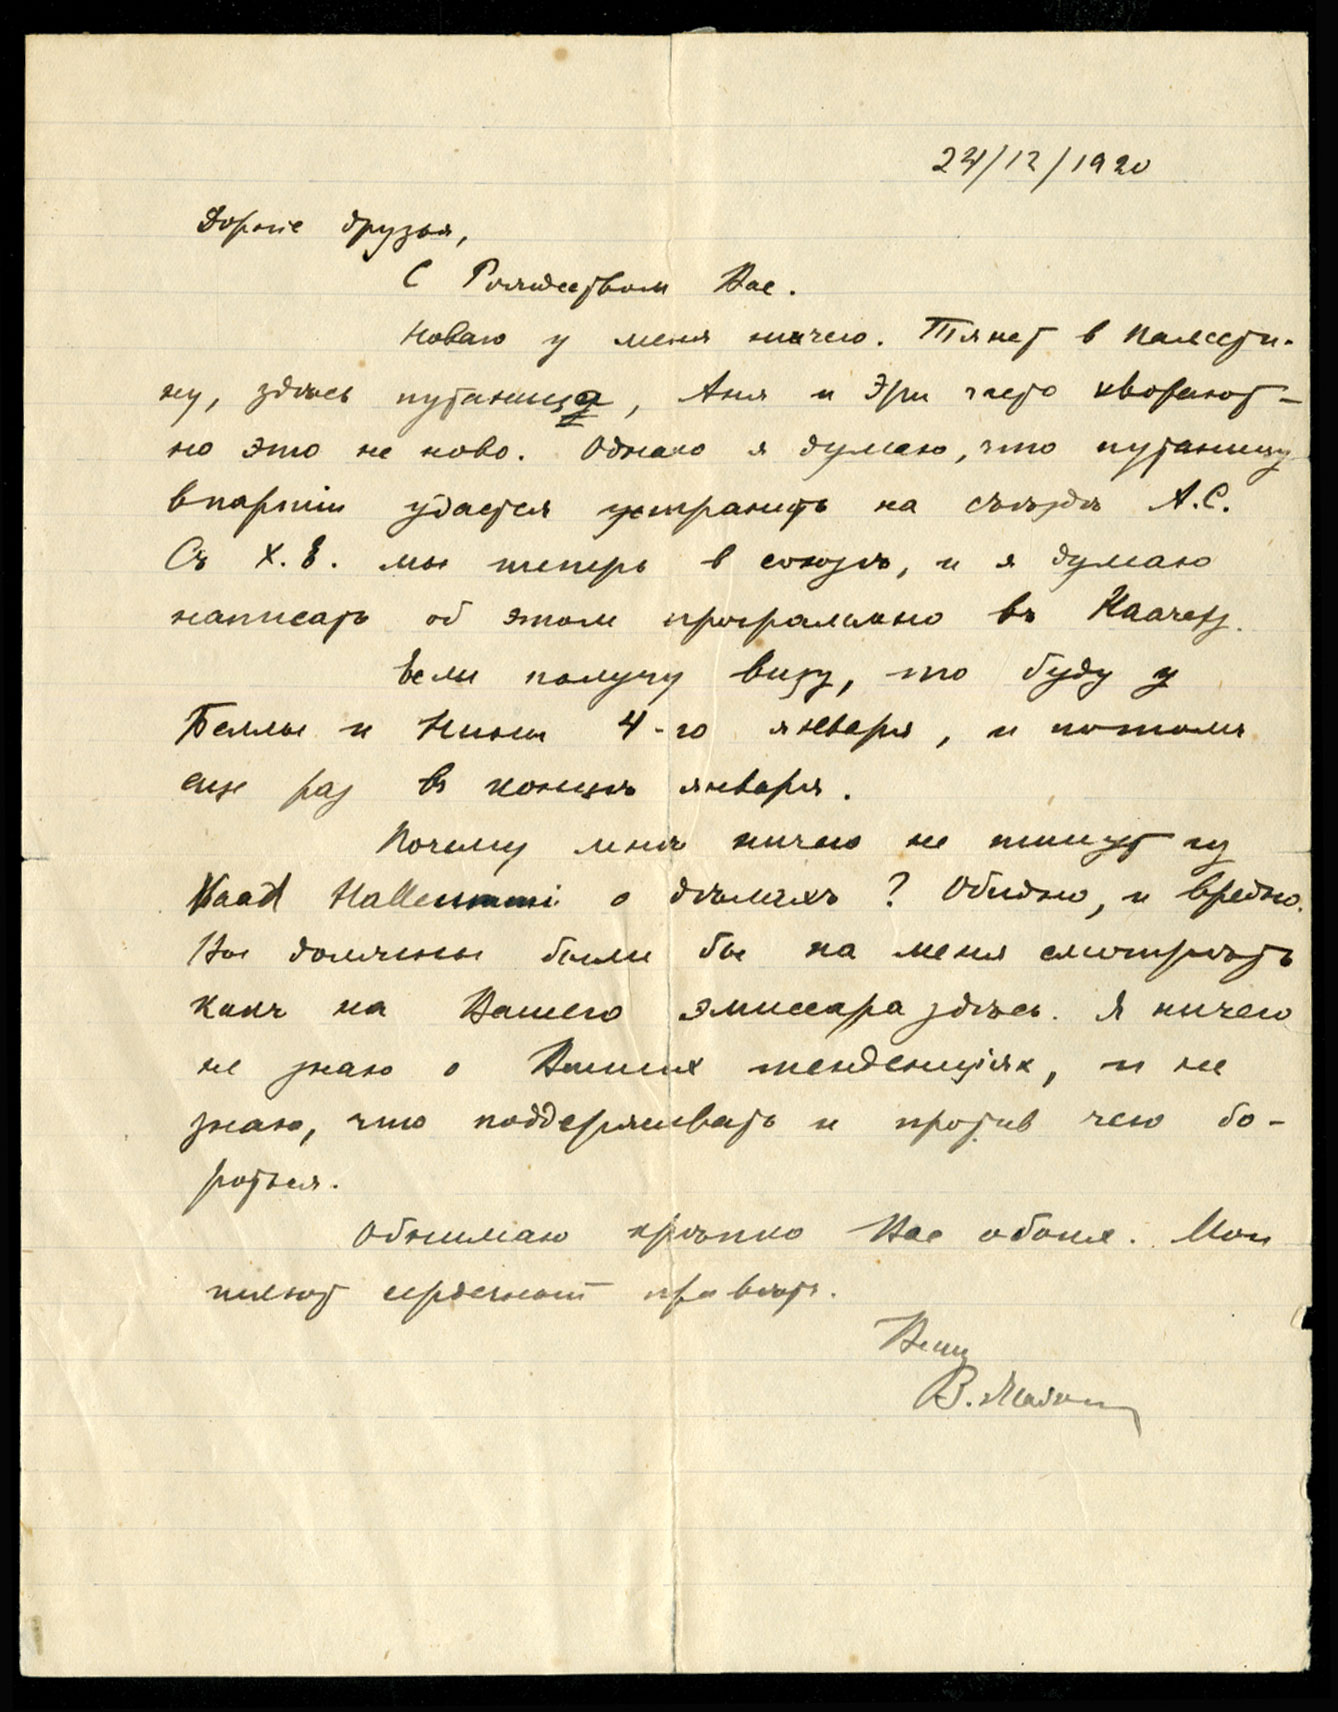 24/12/1920
Дорогие друзья,
С Рождеством Вас.
Новаго у меня ничего. Тянет в Палести-
ну, здѣсь путаница, Аня и Эри часто хворают –
но это не ново. Однако я думаю, что путаницу
в партіи удастся устранить на съѣздѣ А.С.
Съ Х.В. мы теперь в союзѣ, и я думаю
написать об этом программно въ Haaretz.
Если получу визу, то буду у
Беллы и Нюни 4-го января, и потомъ
еще раз въ концѣ января.
Почему мнѣ ничего не пишут из
Waad Halleummi о дѣлахъ? Обидно, и вредно.
Вы должны были бы на меня смотрѣть
какъ на Вашего эмиссара здѣсь. Я ничего
не знаю о Ваших тенденціях, и не
знаю, что поддерживать и против чего бо-
роться.
Обнимаю крѣпко Вас обоих. Мои
шлют сердечный привѣтъ.
Ваш
В.